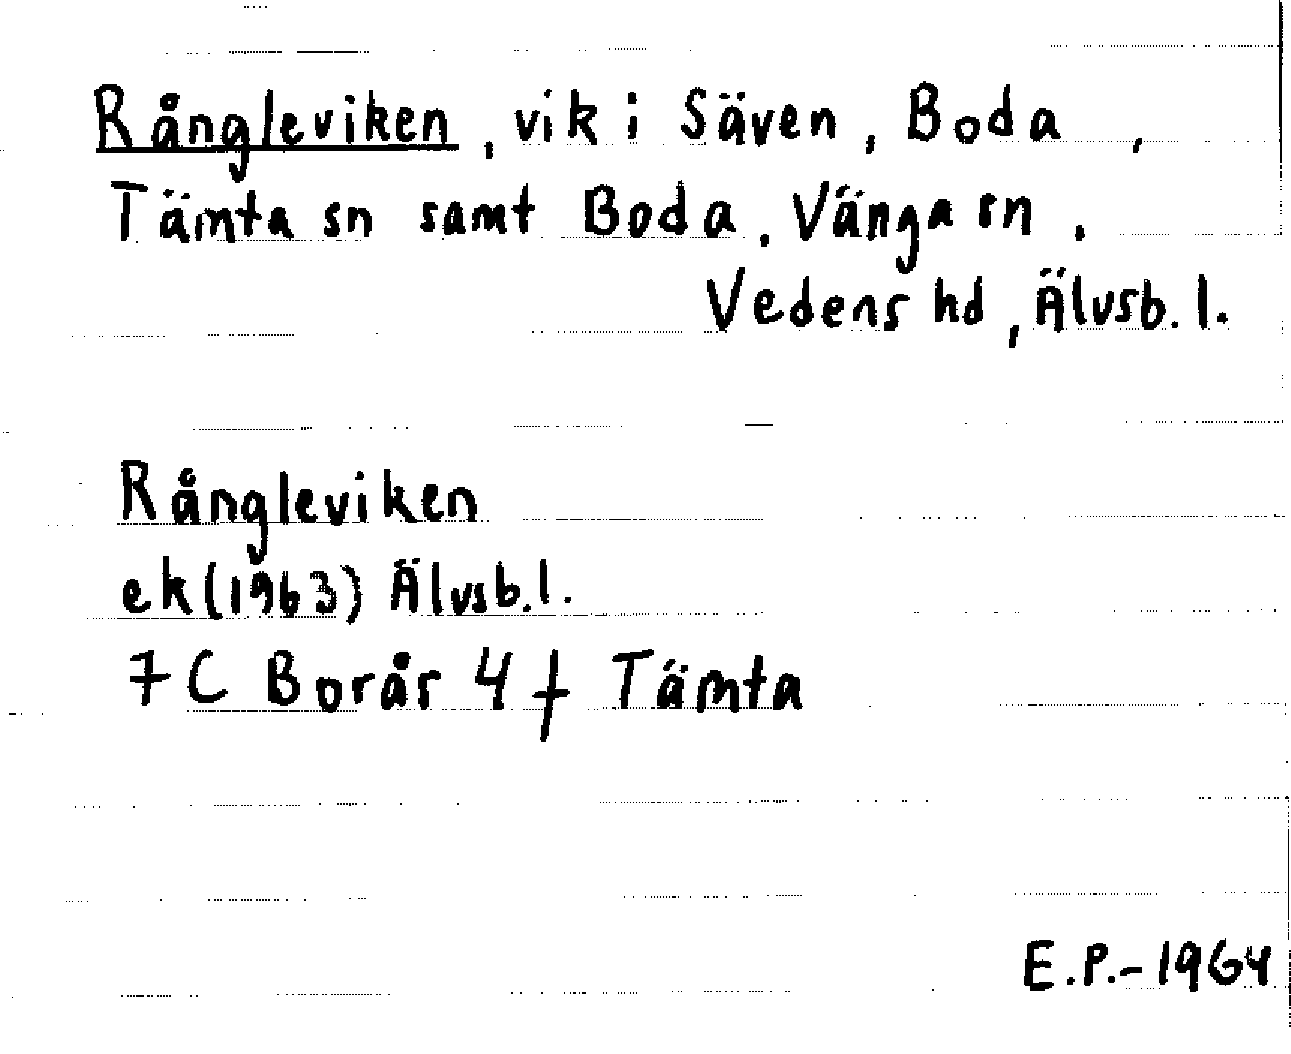 Rångleviken, vik i Säven, Boda,
Tämta sn samt Boda, Vänga sn,
Vedens hd, Älvsb. l.
Rångleviken
ek (1963) Älvsb. l.
7 C Borås 4 f Tämta
E.P.-1964